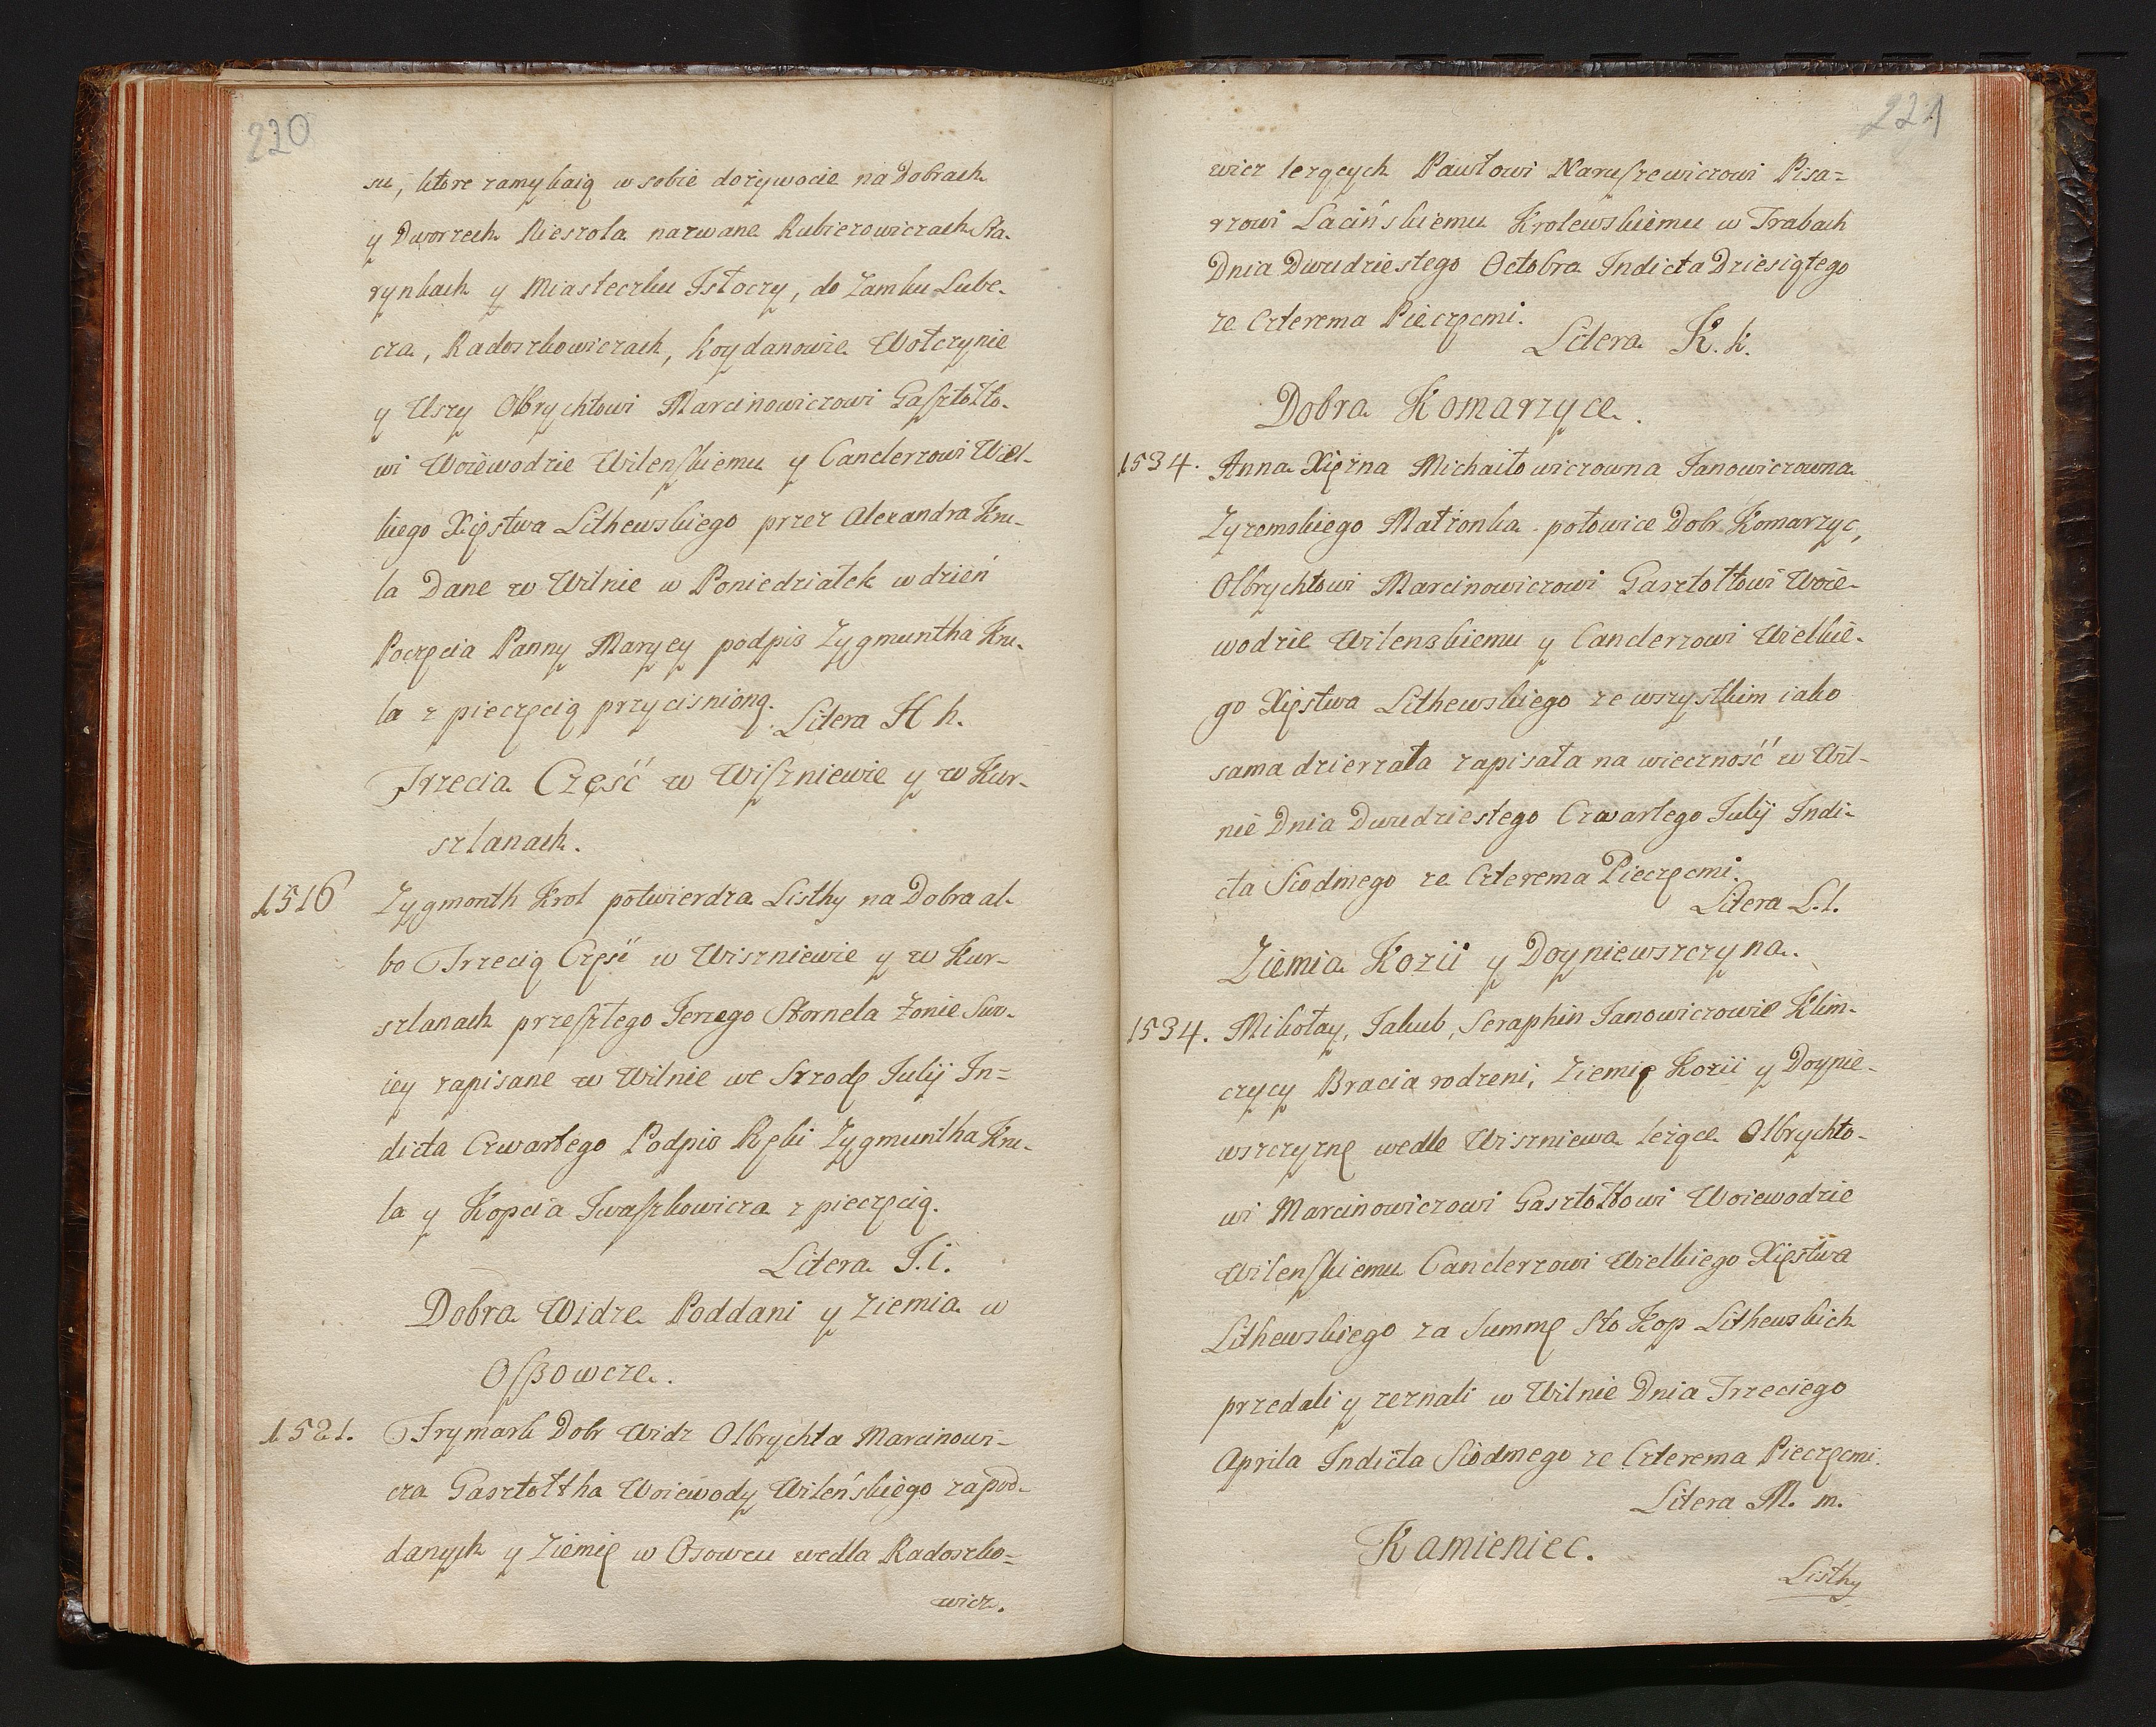 220
su, ktore zamykaią w sobie dożywocie na Dobrach
y Dworzech Rieszola nazwane Kubierowiczach Sta-
rynkach y Miasteczku Istoczy, do Zamku Lube-
cza, Radoszkowiczach, Koydanowie Wołczynie
y Uszy Olbrychtowi Marcinowiczowi Gasztołto-
wi Woiewodzie Wilenskiemu y Canclerzowi Wiel-
kiego Xięstwa Lithewskiego przez Alexandra Kru-
la Dane w Wilnie w Poniedziałek w dzień
Poczęcia Panny Maryey podpis Zygmuntha Kru-
la z pieczęcią przycisnioną.
Litera H h.
Trzecia Część w Wiszniewie y w Kur-
szlanach.
1516 Zygmonth Krol potwierdza Listhy na Dobra al-
bo Trzecią Część w Wiszniewie y w Kur-
szlanach przeszłego Jerzego Stornela Żonie Swo-
iey zapisane w Wilnie we Srzodę Julij In=
dicta Czwartego Podpis Ręki Zygmuntha Kru-
la y Kopcia Iwaszkowicza z pieczęcią.
Litera I. i.
Dobra Widze Poddani y Ziemia w
Osßowcze.
1521. Frymark Dobr Widz Olbrychta Marcinowi-
cza Gasztołtha Woiewody Wileńskiego za pod-
danych y Ziemię w Osowcu wedla Radoszko=
wicz.
221
wicz lezących Pawłowi Naruszewiczowi Pisa=
rzowi Łacińskiemu Krolewskiemu w Trabach
Dnia Dwudziestego Octobra Indicta Dziesiątego
ze Czterema Pieczęcmi.
Litera K. k.
Dobra Komarzyce.
1534. Anna Xiężna Michaiłowiczowna Janowiczowna
Zyzemskiego Małżonka połowice Dobr Komarzyc,
Olbrychtowi Marcinowiczowi Gasztołtowi Woie-
wodzie Wilenskiemu y Canclerzowi Wielkie-
go Xięstwa Lithewskiego ze wszystkim iako
sama dzierzała zapisała na wieczność w Wil-
nie Dnia Dwudziestego Czwartego Julij Indi-
cta Siodmego ze Czterema Pieczęcmi.
Litera L. l.
Ziemia Kozii y Doyniewszczyna.
1534. Mikołay, Jakub, Seraphin Janowiczowie Klim-
czycy Bracia rodzeni, Ziemię Kozii y Doynie-
wszczyznę wedle Wiszniewa leżące Olbrychto-
wi Marcinowiczowi Gasztołtowi Woiewodzie
Wilenskiemu Canclerzowi Wielkiego Xięstwa
Lithewskiego za Summę Sto Kop Lithewskich
przedali y zeznali w Wilnie Dnia Trzeciego
Aprila Indicta Siodmego ze Czterema Pieczęcmi.
Litera M. m.
Kamieniec.
Listhy